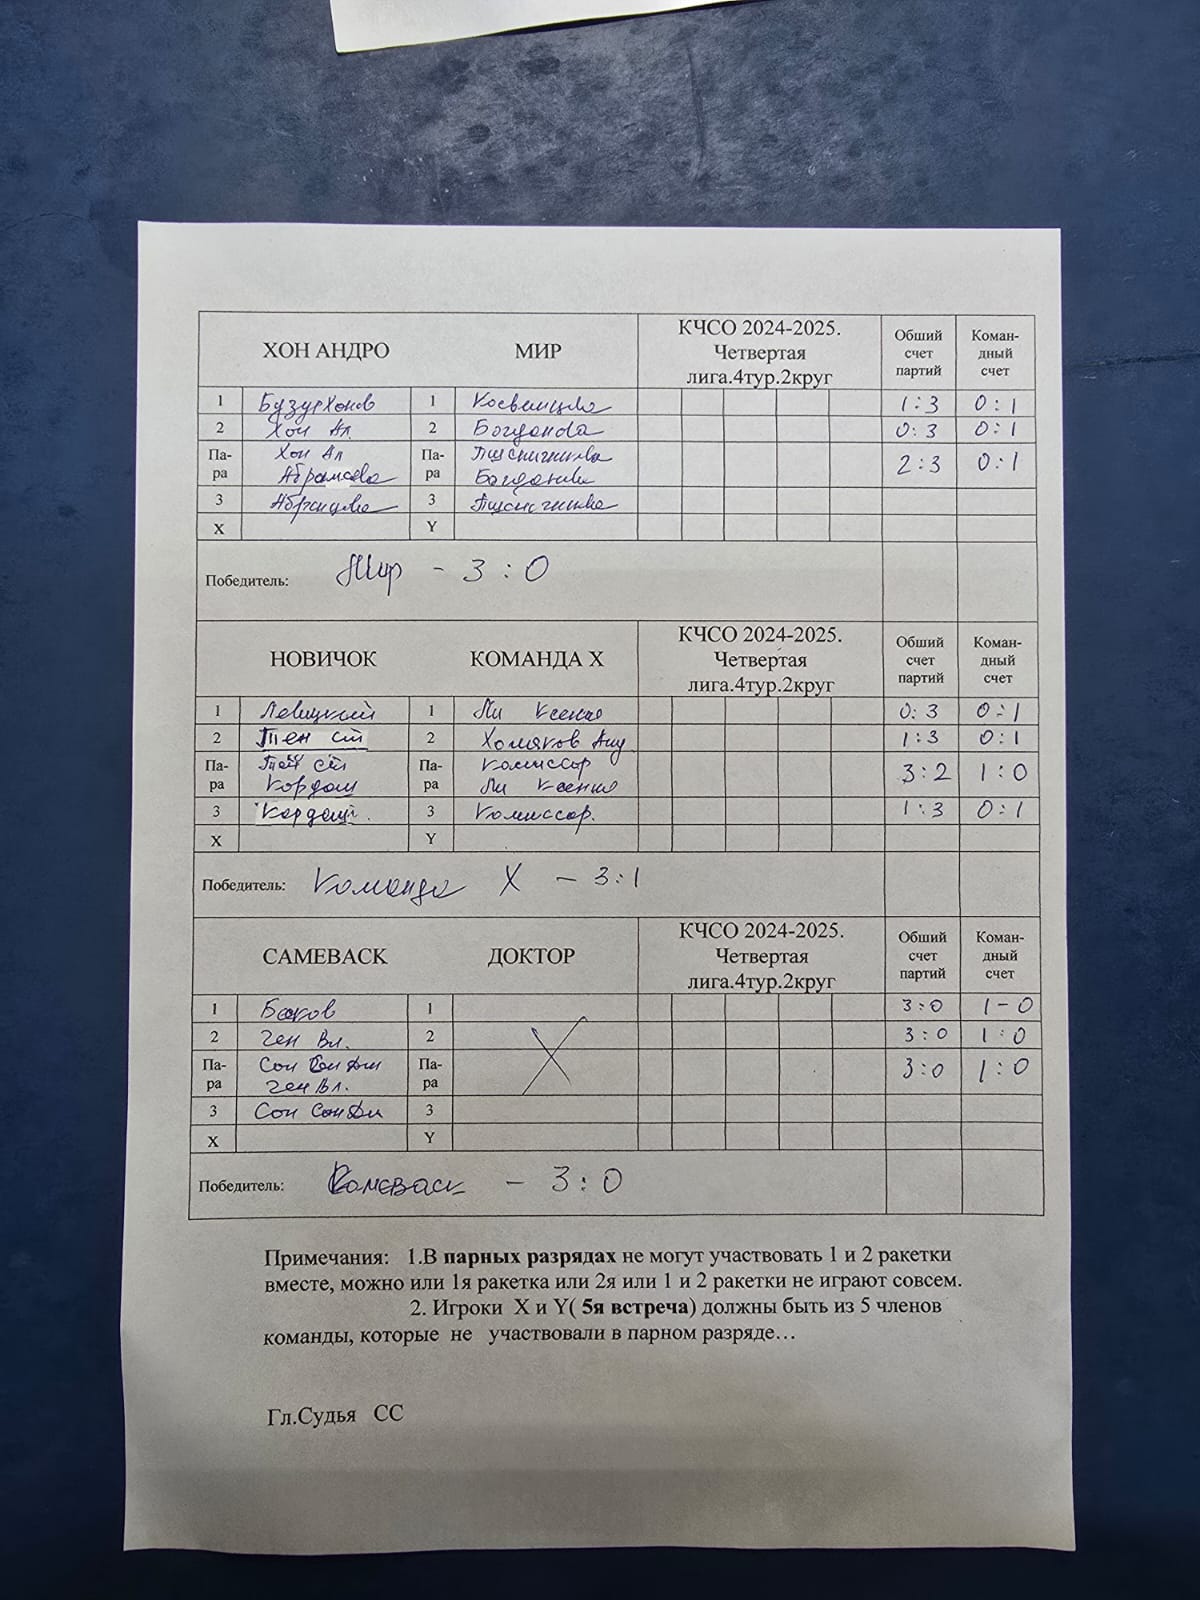 ХОН АНДРО МИР КЧСО 2024-2025. Четвертая лига.4тур.2круг Обший счет партий Коман-дный счет
1 Бузурхонов 1 1:3 0:1
2 Хон Ал. 2 Богданова 0:3 0:1
Па-ра Хон Ал Па-ра Пшеничникова 2:3 0:1
Абрамова Богданова
3 Абрамова 3 Пшеничникова
X Y
Победитель: Мир - 3:0
НОВИЧОК КОМАНДА X КЧСО 2024-2025. Четвертая лига.4тур.2круг Обший счет партий Коман-дный счет
1 Левицкий 1 Ли Ксения 0:3 0:1
2 Тен Ст 2 Хомяков 1:3 0:1
Па-ра Тен Ст Па-ра Комиссар 3:2 1:0
Кордаш Ли Ксения
3 Кордаш. 3 Комиссар. 1:3 0:1
X Y
Победитель: Команда X - 3:1
САМЕВАСК ДОКТОР КЧСО 2024-2025. Четвертая лига.4тур.2круг Обший счет партий Коман-дный счет
1 1 3:0 1-0
2 Вл. 2 3:0 1:0
Па-ра Сон Па-ра 3:0 1:0
Вл.
3 Сон 3
X Y
Победитель: - 3:0
Примечания: 1.В парных разрядах не могут участвовать 1 и 2 ракетки
вместе, можно или 1я ракетка или 2я или 1 и 2 ракетки не играют совсем.
2. Игроки X и Y( 5я встреча) должны быть из 5 членов
команды, которые не участвовали в парном разряде…
Гл.Судья СС